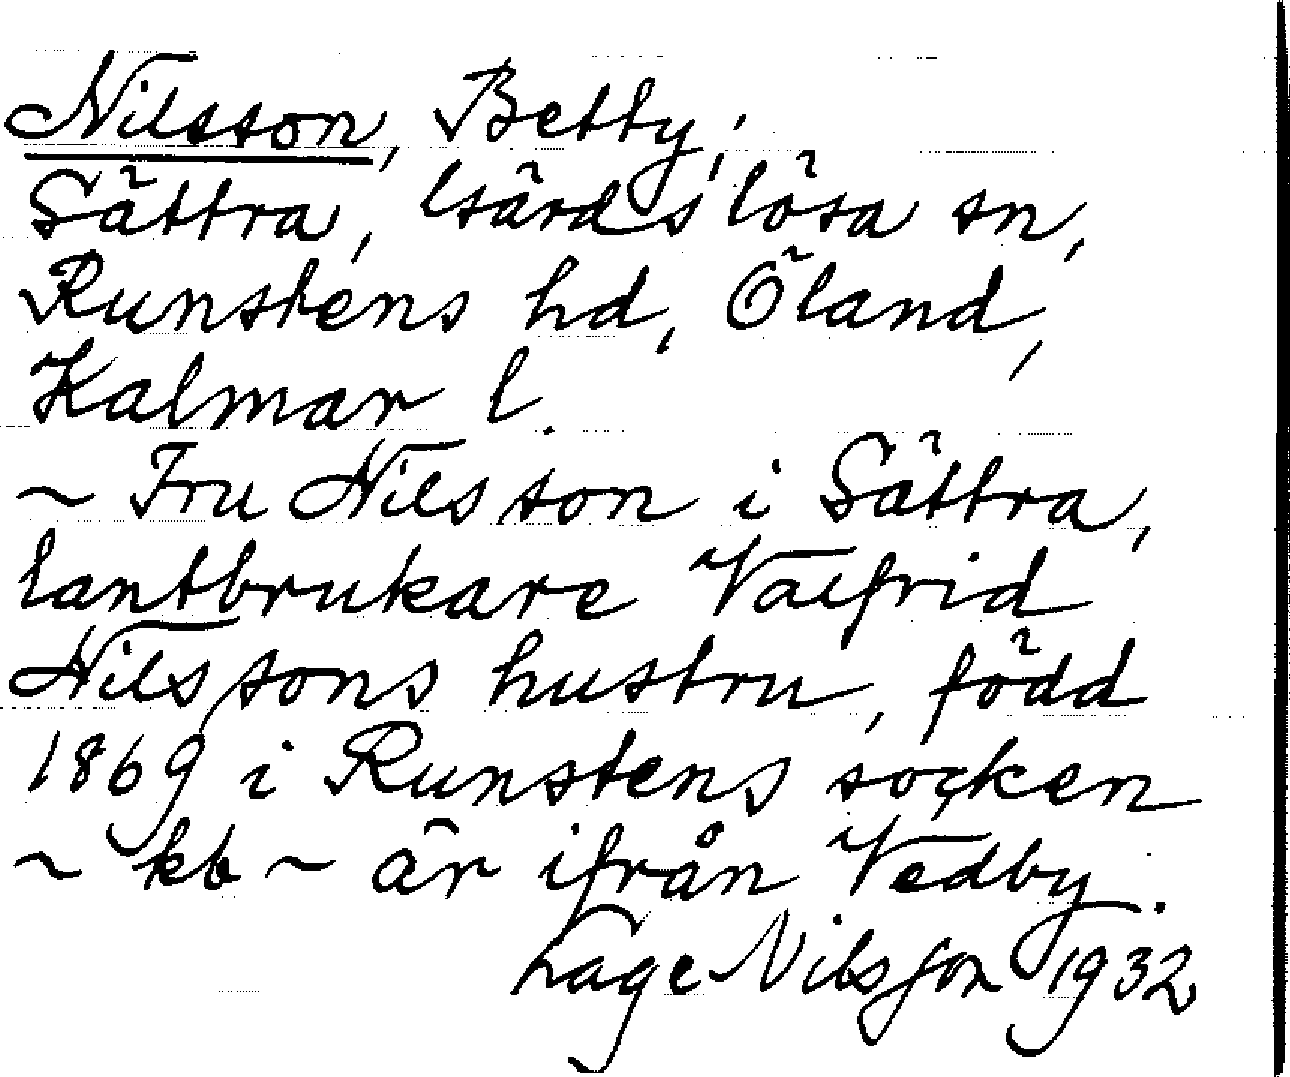 Nilsson, Betty;
Sättra, Gärdslösa sn,
Runstens hd, Öland,
Kalmar l.
~ Fru Nilsson i Sättra,
lantbrukare Valfrid
Nilssons hustru, född
1869 i Runstens socken
~ kb ~ är ifrån Vedby.
Lage Nilsson 1932